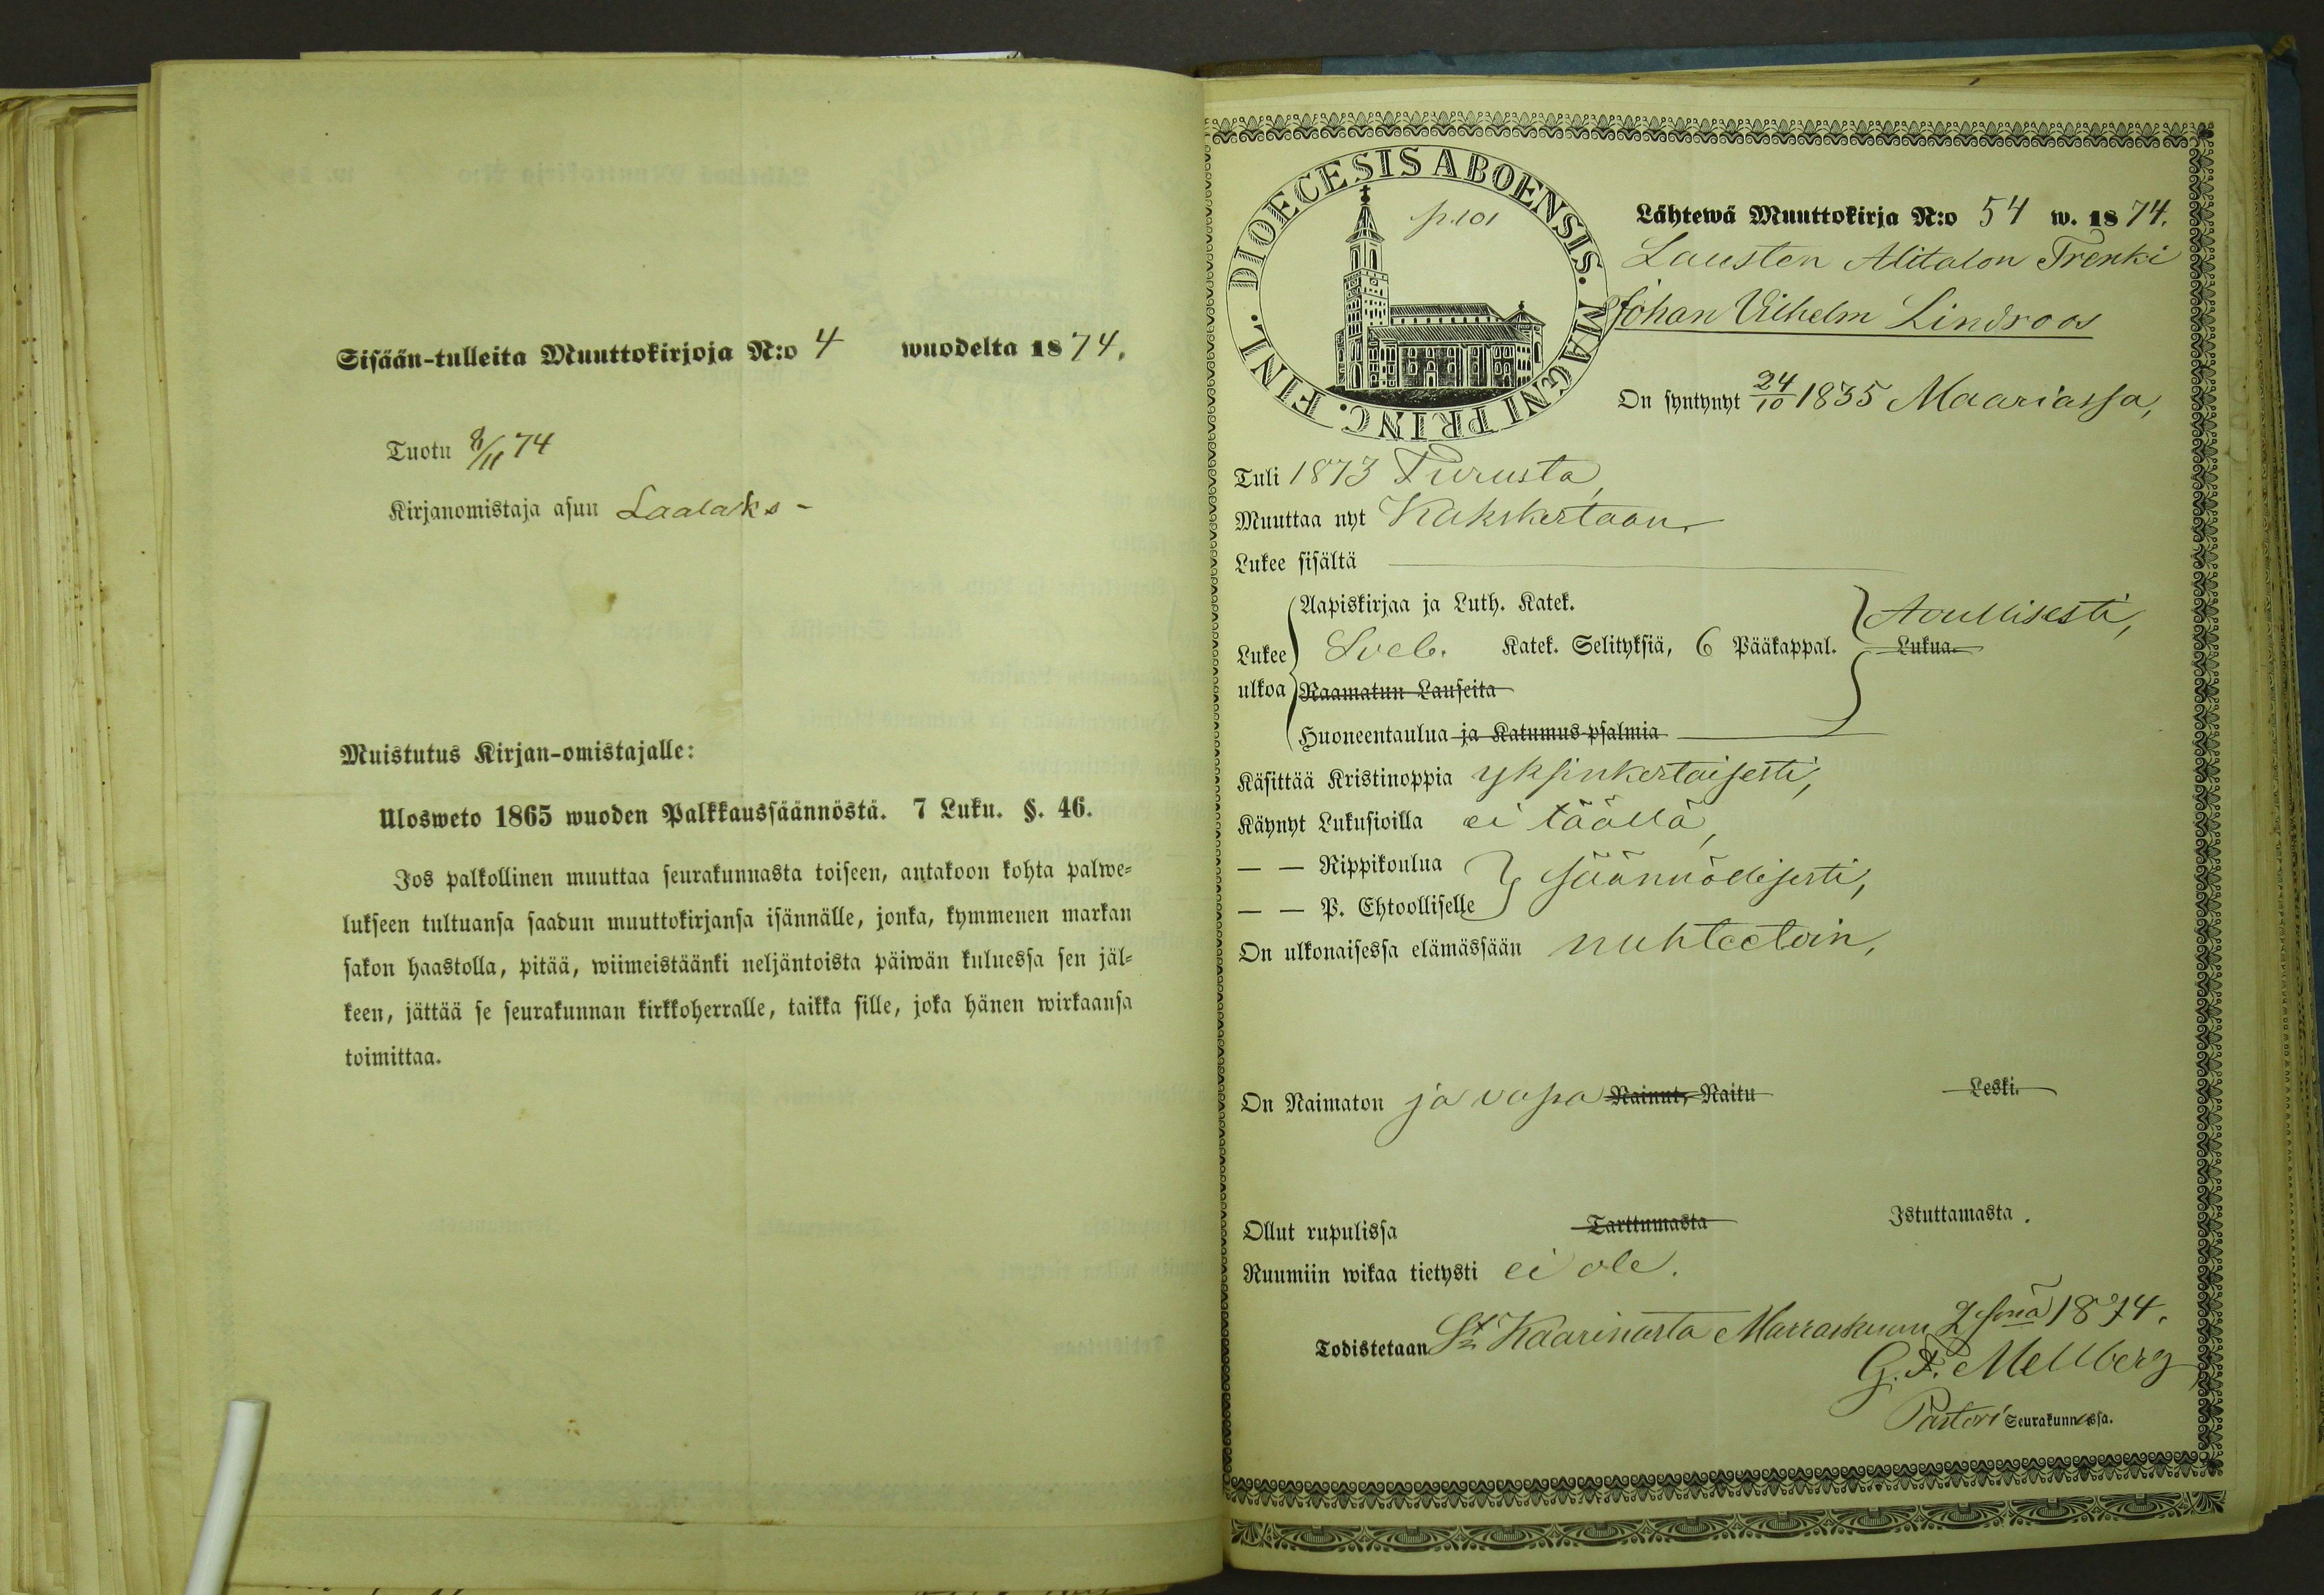 Sisään-tulleita Muuttokirjoja N:o 4 wuodelta 1874.
Tuotu 8/11 74
Kirjanomistaja asuu Laalaks -
Muistutus Kirjan-omistajalle:
Ulosweto 1865 wuoden Palkkaussäännöstä. 7 Luku. §. 46.
Jos palkollinen muuttaa seurakunnasta toiseen, antakoon kohta palwe-
lukseen tultuansa saadun muuttokirjansa isännälle, jonka, kymmenen markan
sakon haastolla, pitää, wiimeistäänki neljäntoista päiwän kuluessa sen jäl-
keen, jättää se seurakunnan kirkkoherralle, taikka sille, joka hänen wirkaansa
toimittaa.
DIOECESIS ABOENSIS. MAGNI PRINC. FINL.
p. 101
Lähtewä Muuttokirja N:o 54 w. 1874.
Lausten Alitalon Trenki
Johan Vilhelm Lindroos
On syntynyt 24/10 1835 Maariassa,
Tuli 1873 Turusta,
Muuttaa nyt Kakskertaan,
Lukee sisältä
Aapiskirjaa ja Luth. Katek.
Lukee Sveb. Katek. Selityksiä, 6 Pääkappal. Lukua.
ulkoa Raamatun Lauseita
Huoneentaulua ja Katumus-psalmia
Käsittää Kristinoppia yksinkertaisesti,
Käynyt Lukusioilla ei täällä,
— — Rippikoulua säännöllisesti,
— — P. Ehtoolliselle
On ulkonaisessa elämässään nuhteetoin,
On Naimaton ja vapa Nainut, Naitu Leski.
Ollut rupulissa Tarttumasta Istuttamasta.
Ruumiin wikaa tietysti ei ole.
Todistetaan St Kaarinasta Marraskuun 2 snä 1874.
G. F. Mellberg
Pastori Seurakunnassa.